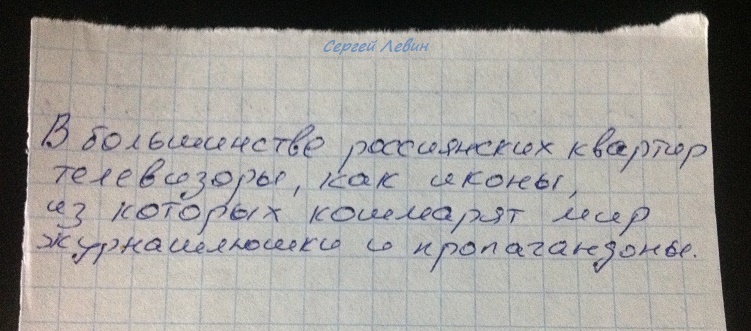 Сергей Левин
В большинстве россиянских квартир
телевизоры, как иконы,
из которых кошмарят мир
журнашлюшки и пропагандоны.